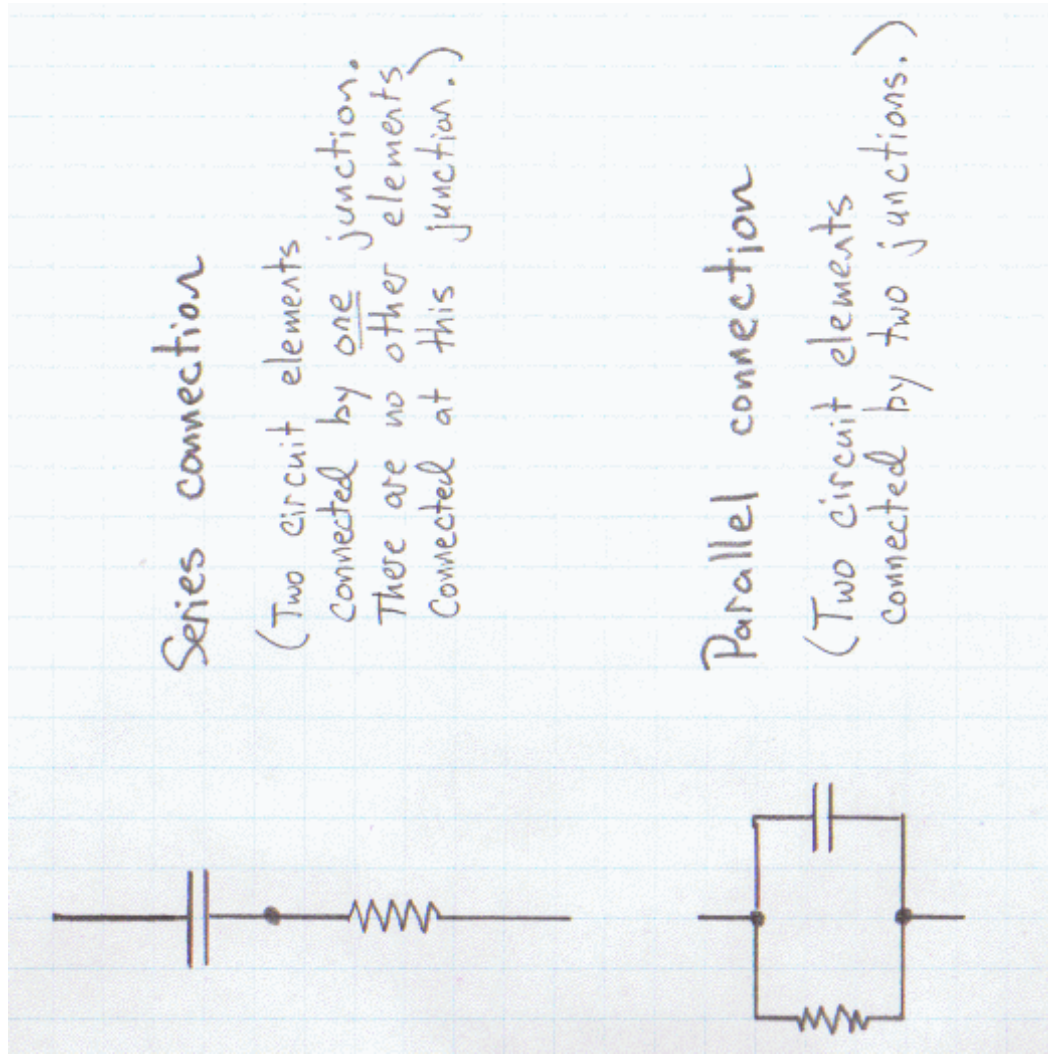 Series connection
(Two circuit elements
connected by one junction.
There are no other elements
connected at this junction.)
Parallel connection
(Two circuit elements
connected by two junctions.)